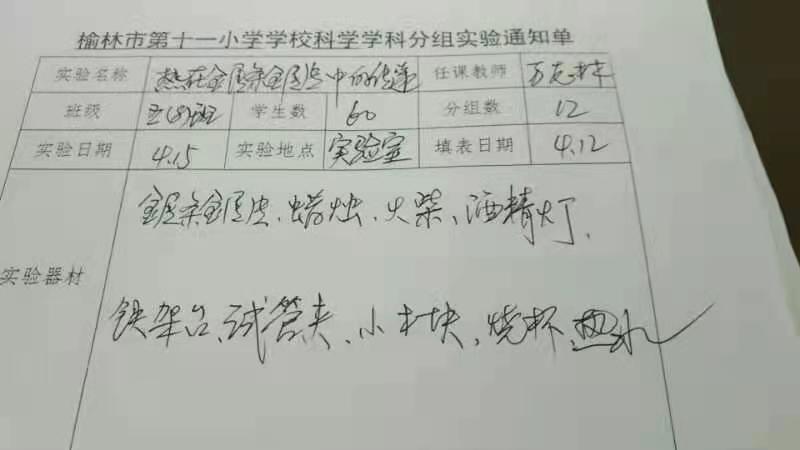 榆林市第十一小学学校科学学科分组实验通知单
实验名称 热在金属条金属片中的传递 任课教师
班级 五(8)班 学生数 60 分组数 12
实验日期 4.15 实验地点 实验室 填表日期 4.12
金属条金属片、蜡烛、火柴、酒精灯、
实验器材
铁架台、试管夹、小木块、烧杯、热水